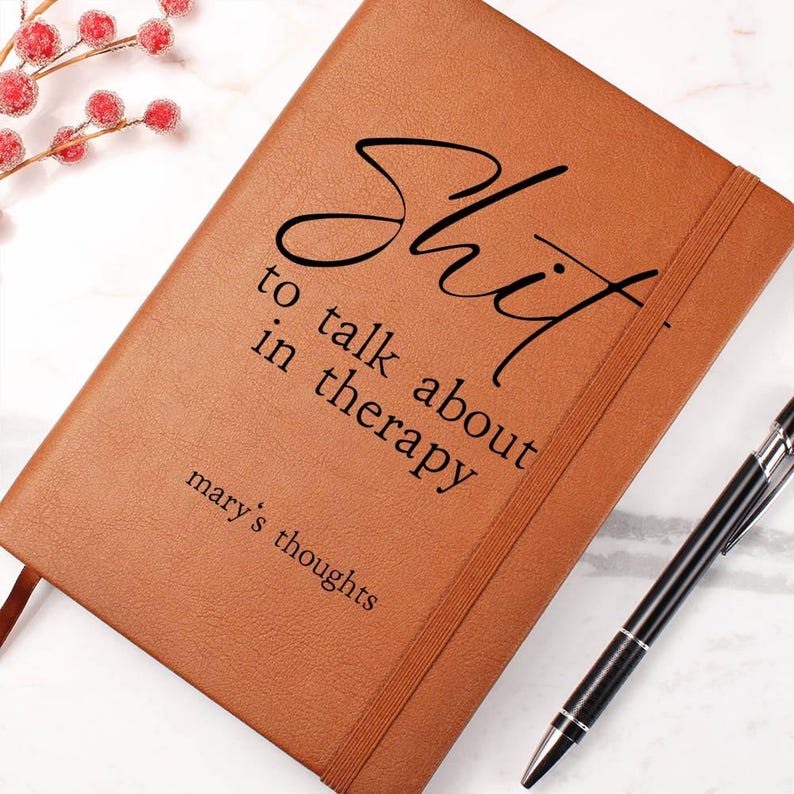 Shit
to talk about
in therapy
mary's thoughts